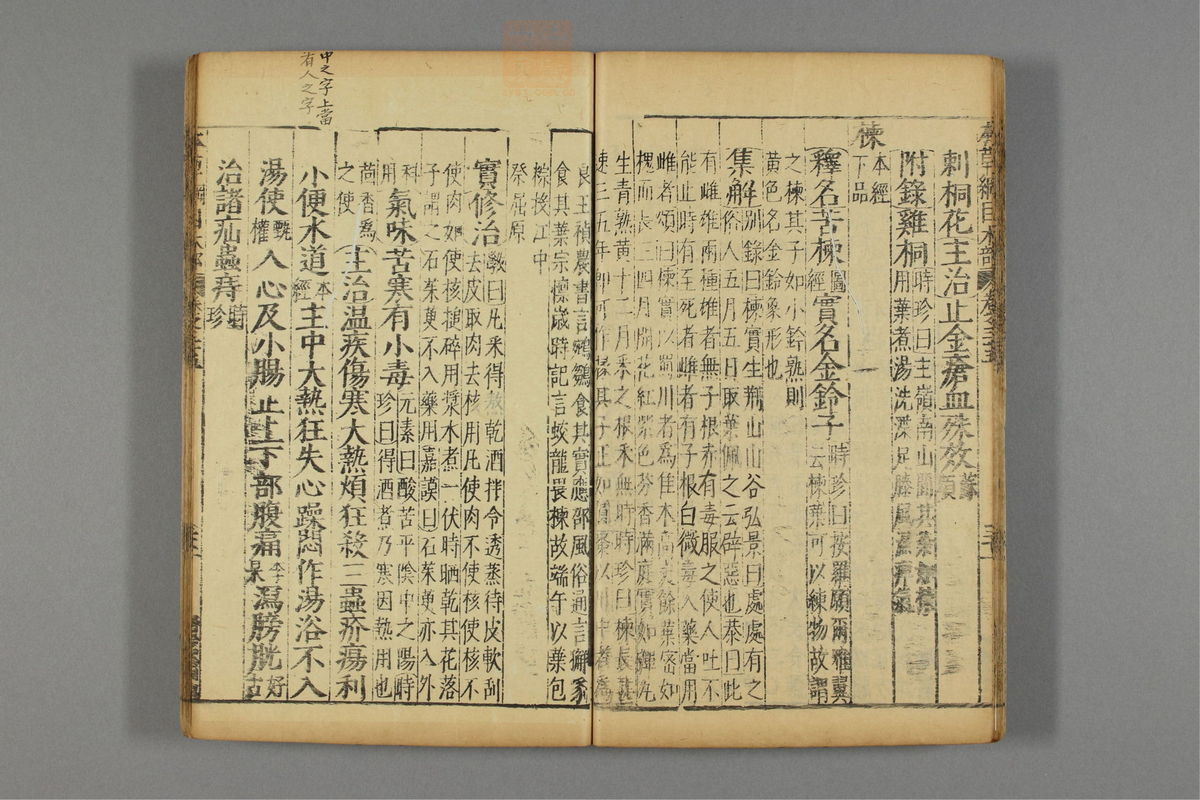 刺桐花主治止金瘡血殊效蘇頌
附錄雞桐時珍曰生嶺南山間其葉如楝
用葉煮湯洗渫足膝風濕痹氣
楝本經下品
釋名苦楝圖經實名金鈴子時珍曰按羅願爾雅翼
云楝葉可以練物故謂
之楝其子如小鈴熟則
黃色名金鈴象形也
集解別錄曰楝實生荊山山谷弘景曰處處有之
俗人五月五日取葉佩之云辟惡也恭曰此
有雌雄兩種雄者無子根赤有毒服之使人吐不
能止時有至死者雌者有子根白微毒入藥當用
雌者頌曰楝實以蜀川者為佳木高丈餘葉密如
槐而長三四月開花紅紫色芬香滿庭實如彈丸
生青熟黃十二月采之根采無時時珍曰楝長甚
速三五年即可作椽其子正如圓棗以川中者為
良王禎農書言鵷鶵食其實應邵風俗通言獬豸
食其葉宗懔歲時記言蛟龍畏楝故端午以葉包
粽投江中
祭屈原
實修治斆曰凡采得熬乾酒拌令透蒸待皮軟刮
去皮取肉去核用凡使肉不使核使核不
使肉如使核搥碎用漿水煮一伏時晒乾其花落
子謂之石茱萸不入藥用嘉謨曰石茱萸亦入外
科用氣味苦寒有小毒元素曰酸苦平陰中之陽時
珍曰得酒煮乃寒因熱用也
茴香為之使主治溫疾傷寒大熱煩狂殺三蟲疥瘍利
小便水道本經主中大熱狂失心躁悶作湯浴不入
湯使甄權入心及小腸止上下部腹痛李杲瀉膀胱好古
治諸疝蟲痔時珍
中之字上當
有人之字